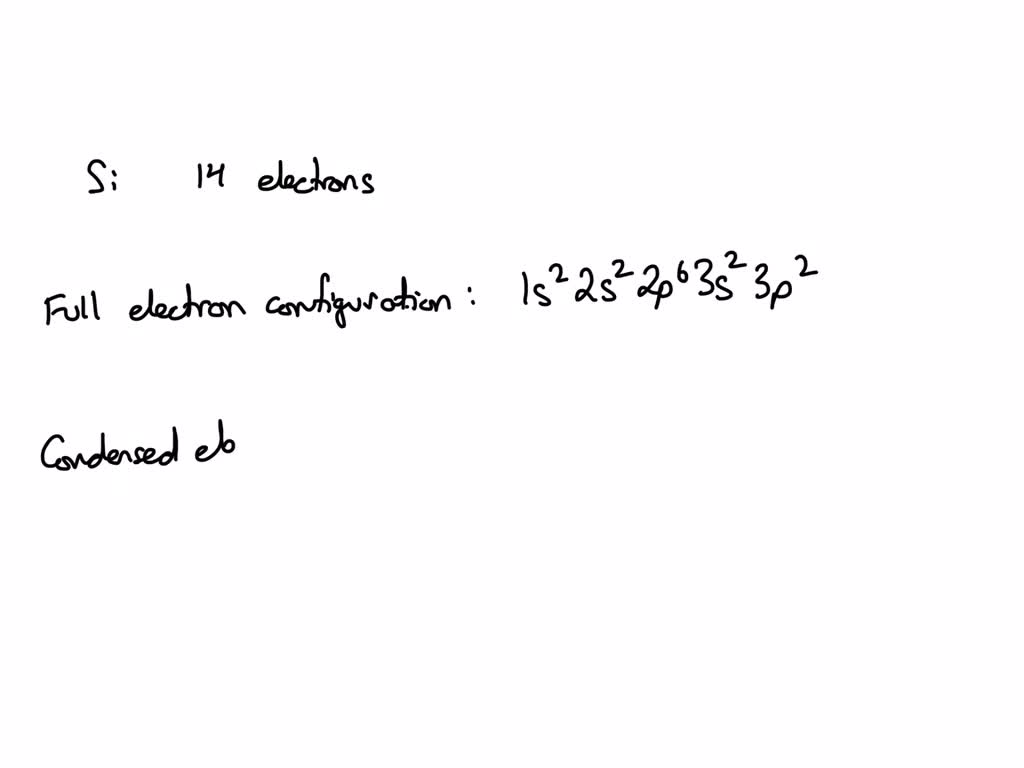 Si 14 electrons
Full electron configuration: 1s² 2s² 2p⁶ 3s² 3p²
Condensed